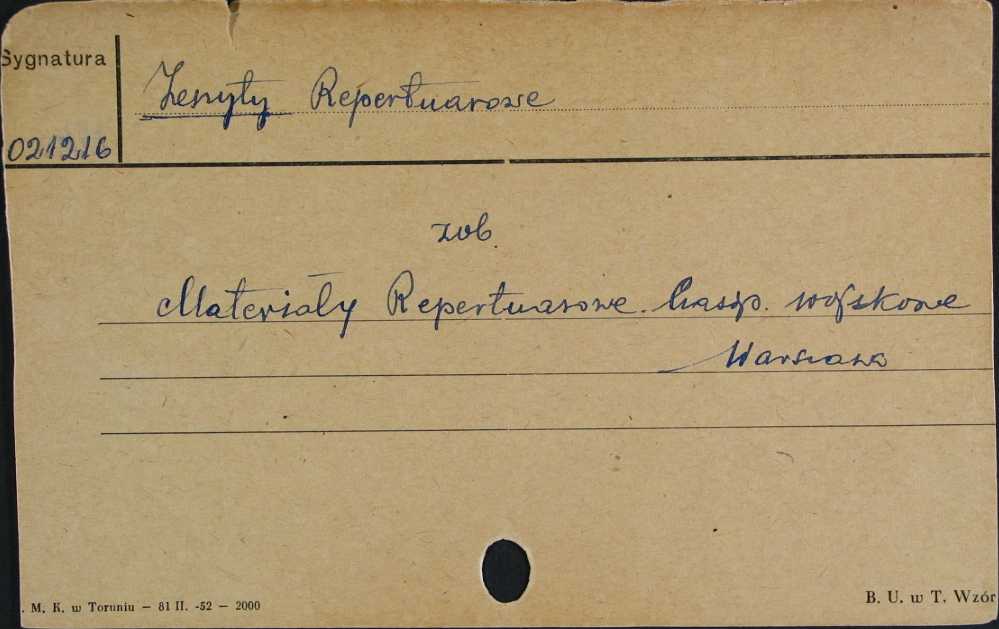 Sygnatura
Zeszyty Repertuarowe
021216
zob
Materiały Repertuarowe. Czasop. wojskowe
Warszawa
. M. K. w Toruniu — 81 II. -52 — 2000
B. U. w T. Wzór